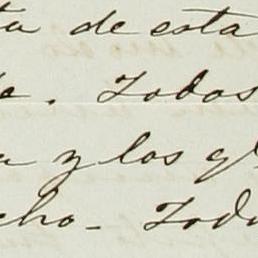 ta de esta
. Todos
a y los q
cho - Todo